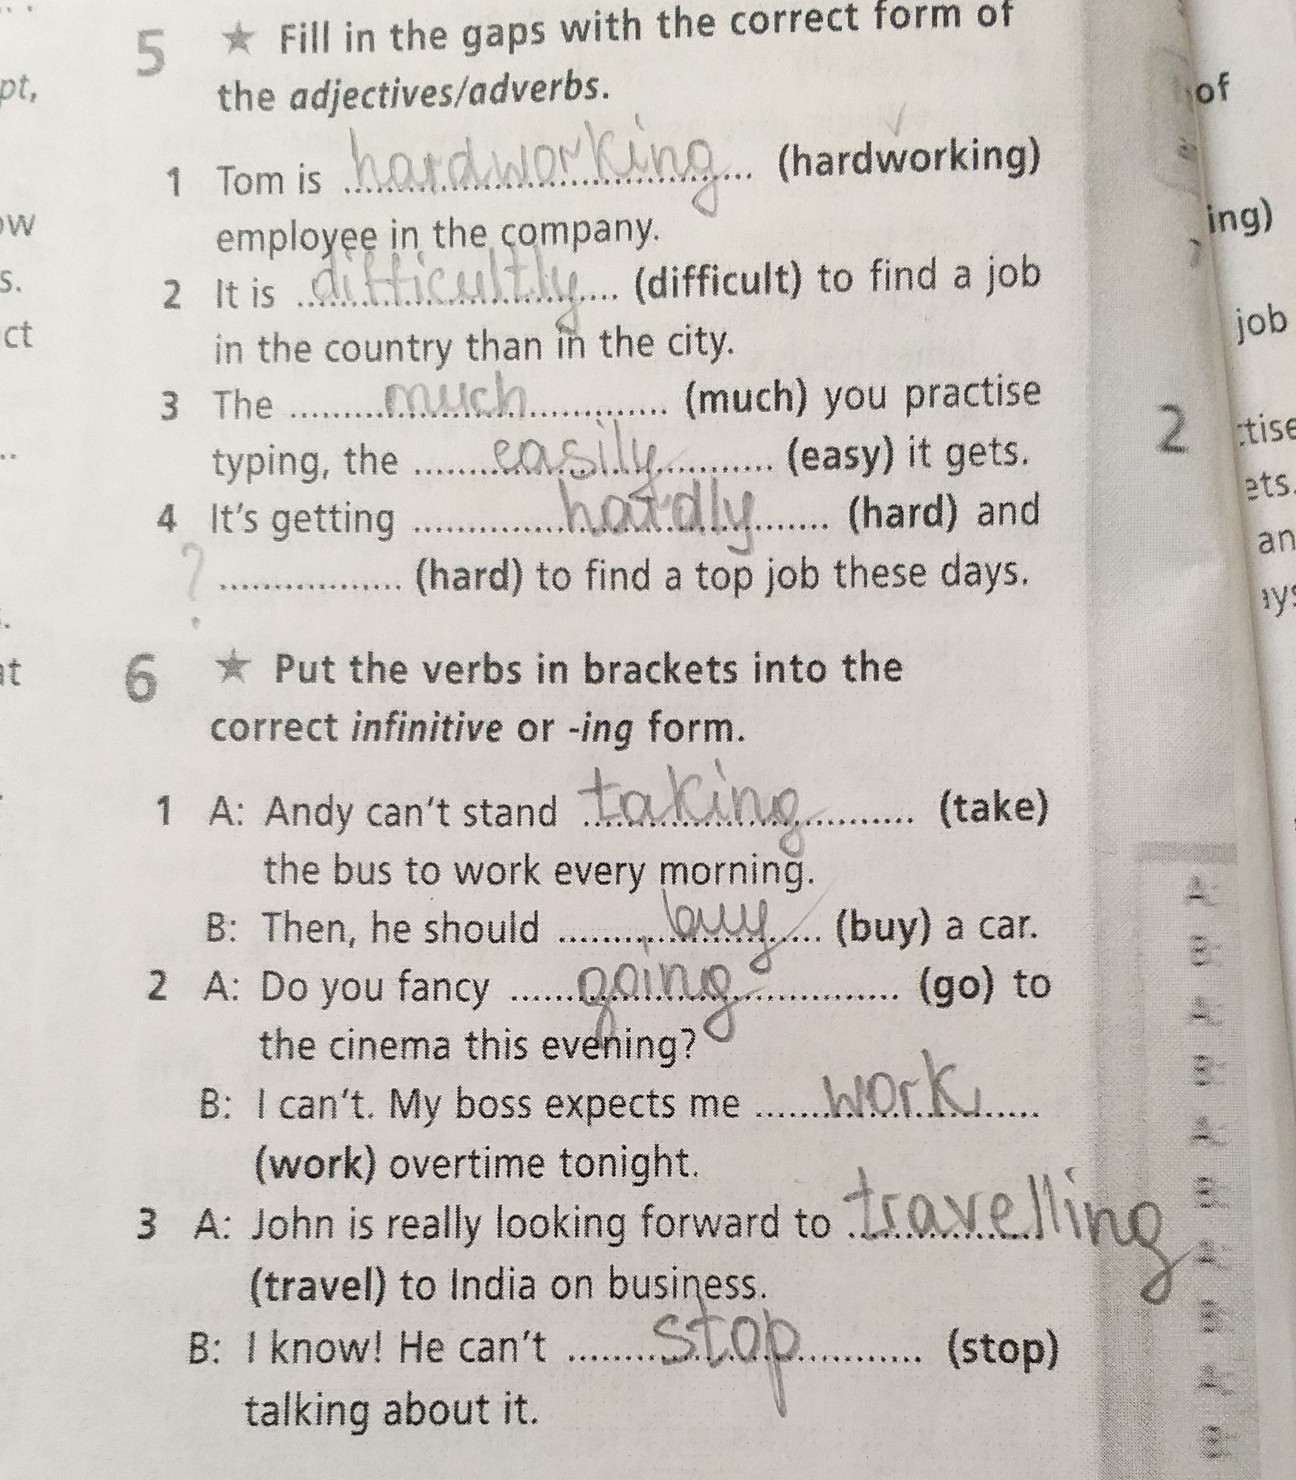 pt,
ow
s.
ct
..
at
5 ★ Fill in the gaps with the correct form of
the adjectives/adverbs.
1 Tom is hardworking (hardworking)
employee in the company.
2 It is difficultly (difficult) to find a job
in the country than in the city.
3 The much (much) you practise
typing, the easily (easy) it gets.
4 It's getting hardly (hard) and
? ................. (hard) to find a top job these days.
6 ★ Put the verbs in brackets into the
correct infinitive or -ing form.
1 A: Andy can't stand taking (take)
the bus to work every morning.
B: Then, he should buy (buy) a car.
2 A: Do you fancy going (go) to
the cinema this evening?
B: I can't. My boss expects me work
(work) overtime tonight.
3 A: John is really looking forward to travelling
(travel) to India on business.
B: I know! He can't stop (stop)
talking about it.
of
ing)
job
2
ctise
ets.
an
ays